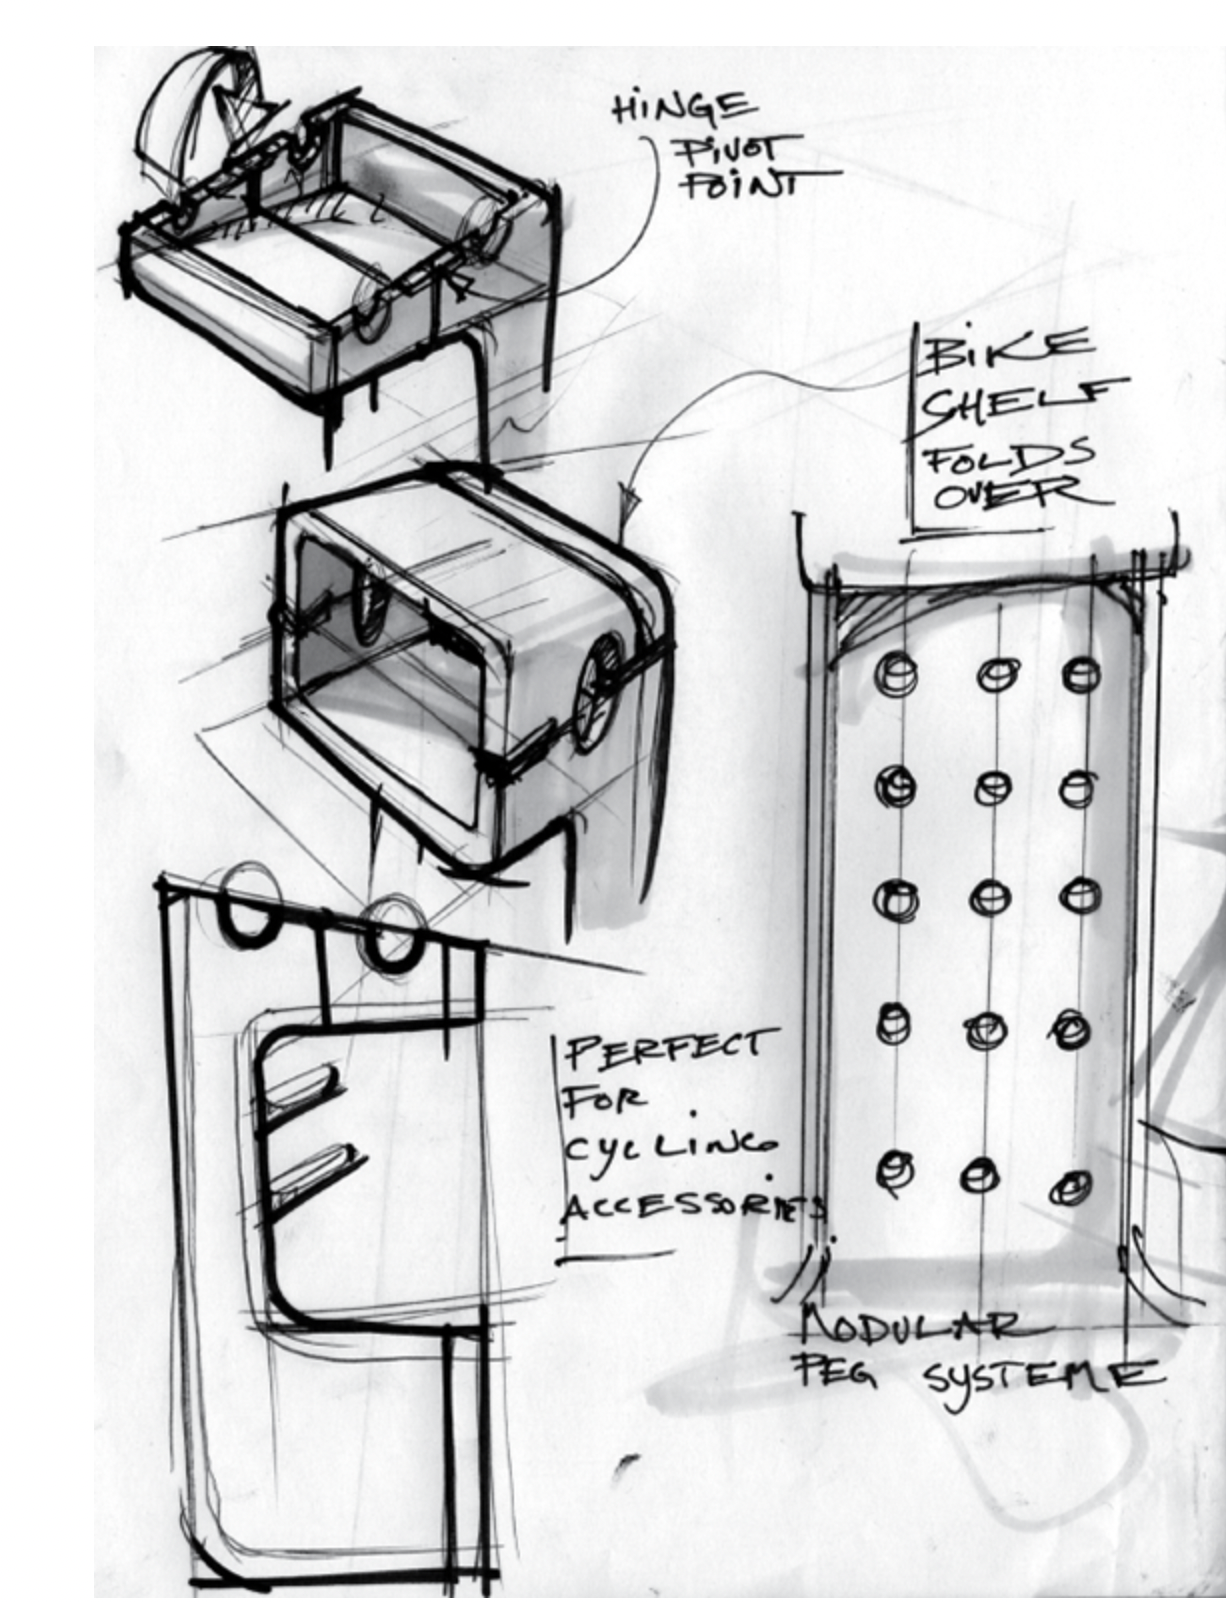 HiNGE
PiVOT
POiNT
BiKE
SHELF
FOLDS
OVER
PERFECT
FOR
CycLiNG
ACCESSORIES
MODULAR
PEG SySTEME